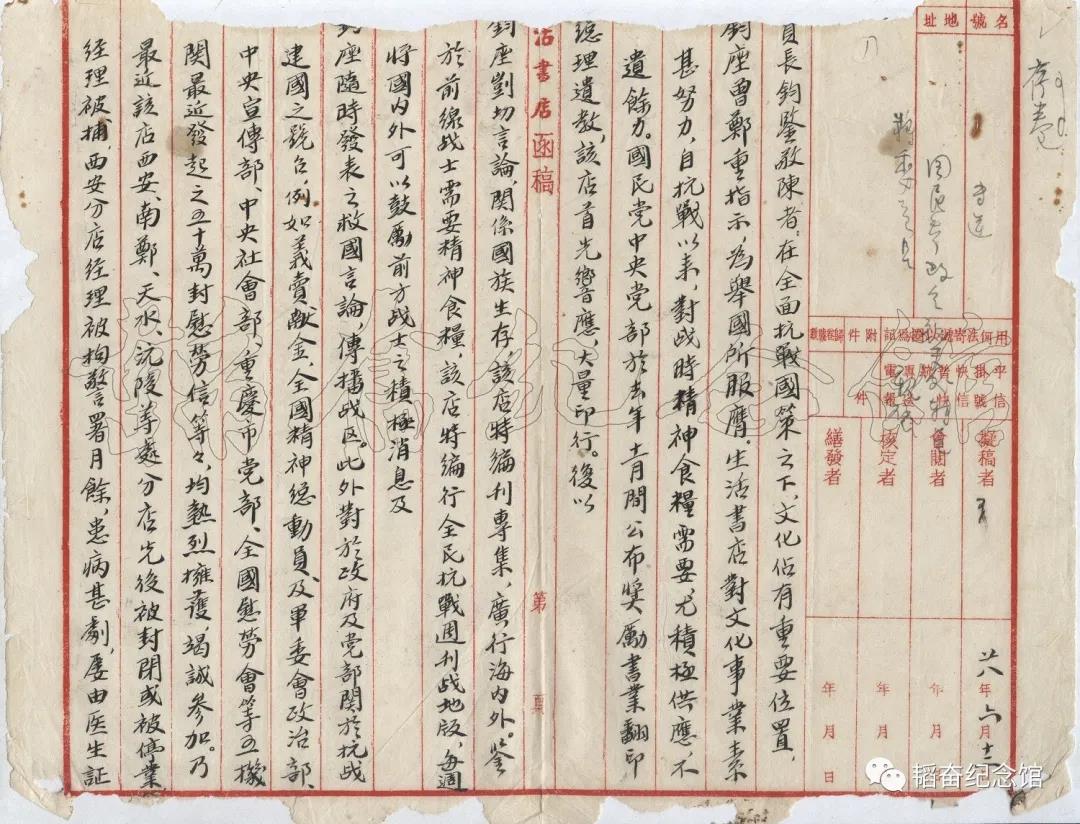 存卷
名號
地址
寄送
用何法寄
附件
平信
掛號
快信
電報
擬稿者
會閱者
核定者
繕發者
廿八年六月十二
年月
年月
年月日
員長鈞鑒敬陳者:在全面抗戰國策之下,文化佔有重要位置,
鈞座曾鄭重指示,為舉國所服膺。生活書店對文化事業素
甚努力,自抗戰以来,對战時精神食糧需要尤積極供應不
遺餘力。國民党中央党部於去年十一月間公布奖勵書業翻印
總理遺教,該店首先響應,大量印行。後以
活書店函稿
第
頁
鈞座剴切言論,関係國族生存,該店特編刊專集,廣行海内外。鉴
於前線战士需要精神食糧,該店特编行全民抗戰週刊战地版,每週
將國内外可以鼓勵前方战士之積極消息及
鈞座隨時發表之救國言論,傳播战区。此外對於政府及党部関於抗战
建國之號召,例如義賣献金、全國精神總動員、及軍委會政治部、
中央宣傳部、中央社會部、重慶市党部、全國慰勞會等五機
関最近發起之五十萬封慰勞信等々,均熱烈擁護,竭誠参加。乃
最近該店西安、南鄭、天水、沅陵等處分店先後被封閉或被停業
经理被捕,西安分店经理被拘警署月餘,患病甚劇,屡由医生証
韬奋纪念馆